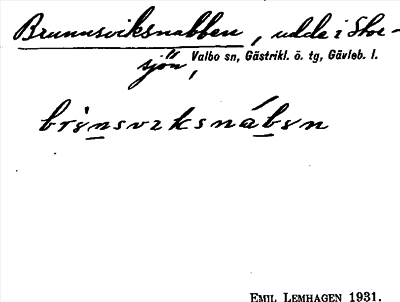 Brunnsviksnabben, udde i Stor-
sjön, Valbo sn, Gästrikl. ö. tg, Gävleb. l.
brɤ̀nsvɪksnábɤn
EMIL LEMHAGEN 1931.